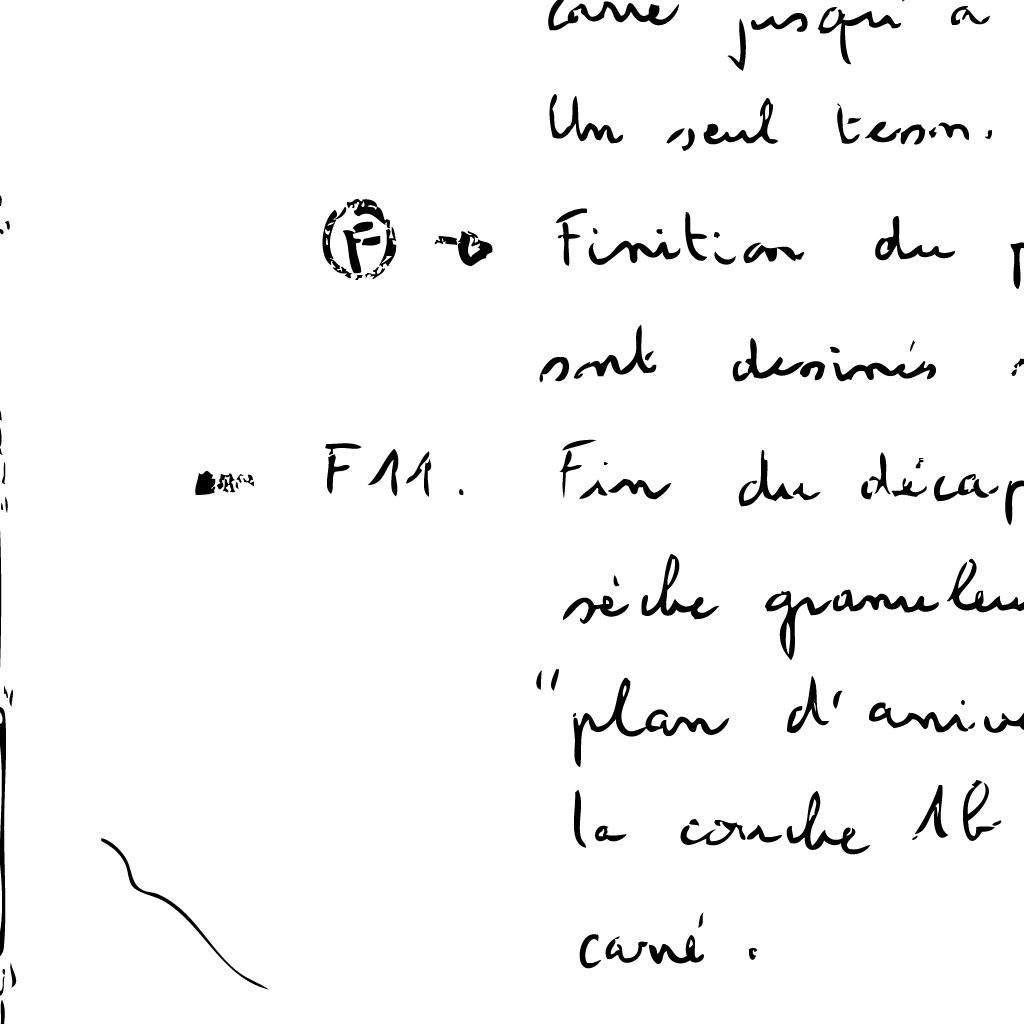 carré jusqu'à
Un seul tesson.
F → Finition du
sont dessinés
F11. Fin du décap
sèche granuleu
"plan d'arrivé
la couche 1b
carré.